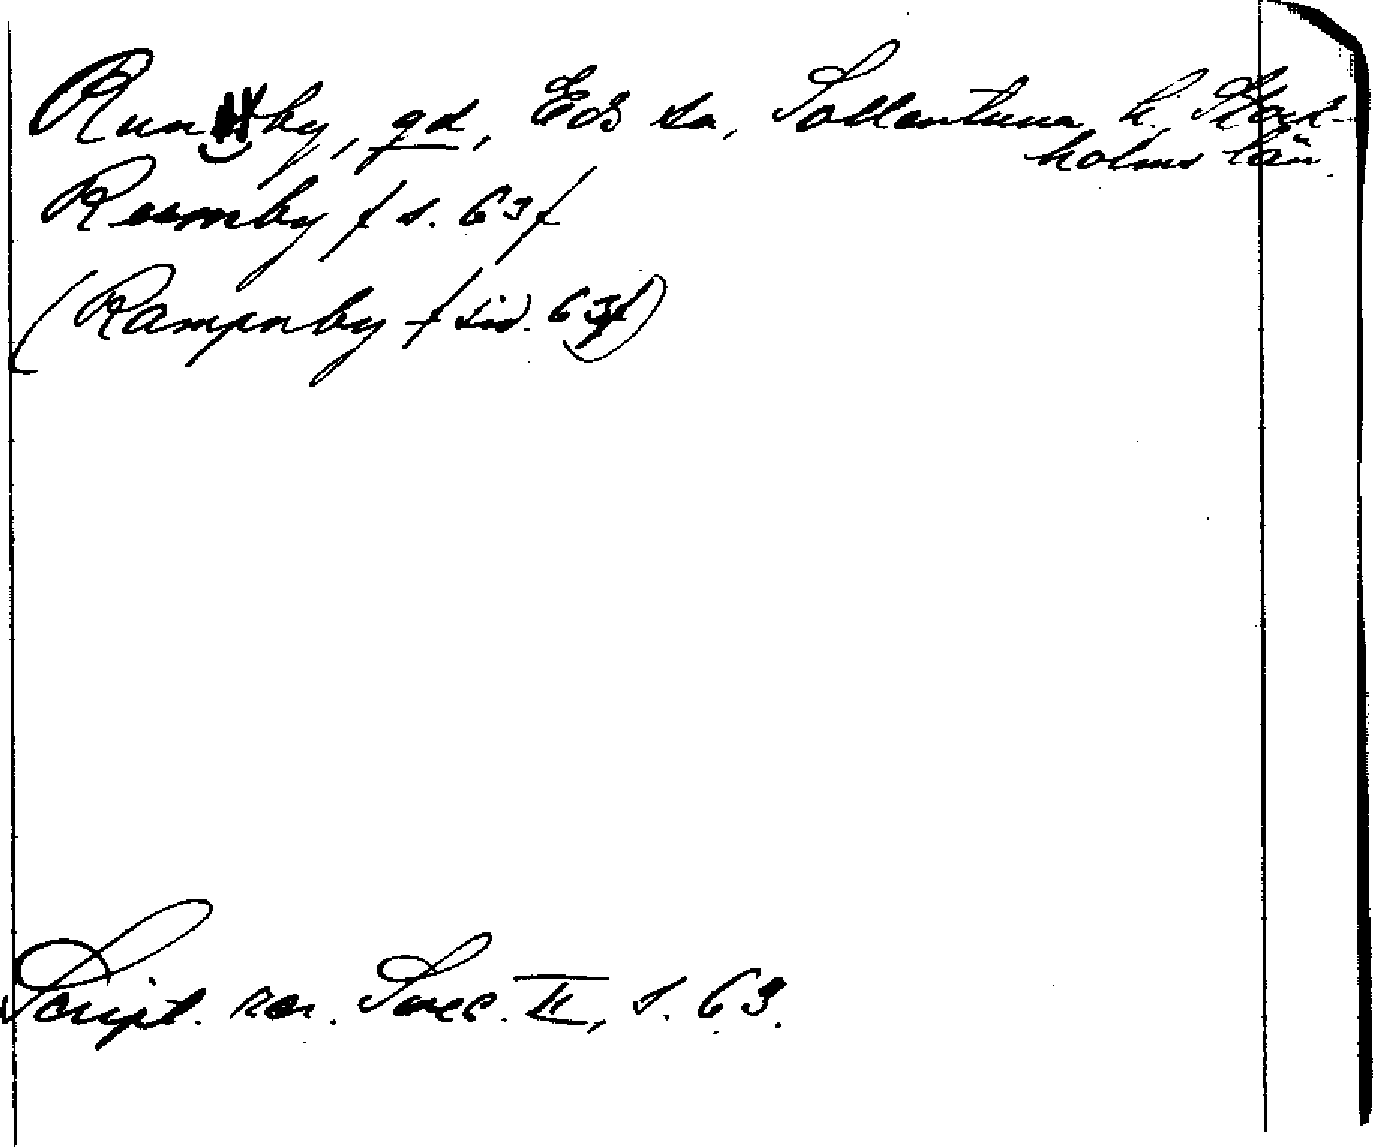 Runby, gd, Eds sn, Sollentuna h. Stock-
holms län.
Rumby / s. 63 /
(Rampnby / sid. 63 /)
Script. rer. Svec. II, s. 63.